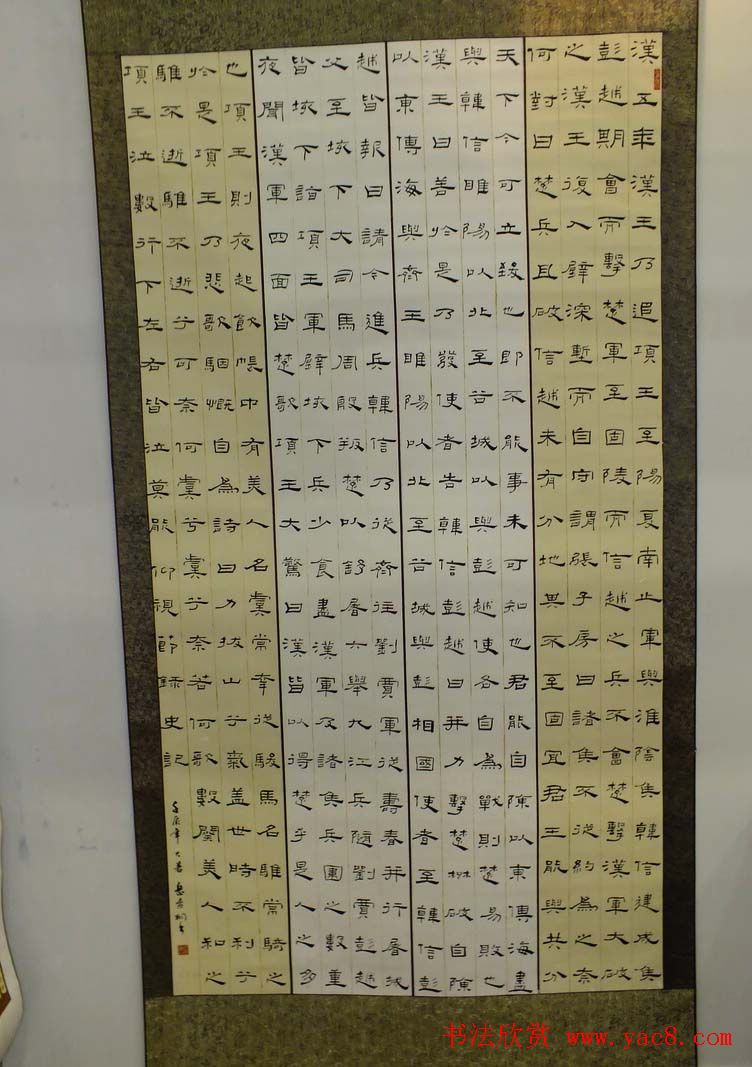 漢五年漢王乃追項王至陽夏南止軍與淮陰侯韓信建成侯
彭越期會而擊楚軍至固陵而信越之兵不會楚擊漢軍大破
之漢王復入壁深塹而自守謂張子房曰諸侯不從約為之奈
何對曰楚兵且破信越未有分地其不至固宜君王能與共分
天下今可立致也即不能事未可知也君能自陳以東傅海盡
與韓信睢陽以北至谷城以與彭越使各自為戰則楚易敗也
漢王曰善於是乃發使者告韓信彭越曰并力擊楚楚破自陳
以東傅海與齊王睢陽以北至谷城與彭相國使者至韓信彭
越皆報曰請今進兵韓信乃從齊往劉賈軍從壽春并行屠城
父至垓下大司馬周殷叛楚以舒屠六舉九江兵隨劉賈彭越
皆垓下詣項王軍壁垓下兵少食盡漢軍及諸侯兵圍之數重
夜聞漢軍四面皆楚歌項王大驚曰漢皆以得楚乎是人之多
也項王則夜起飲帳中有美人名虞常幸從駿馬名騅常騎之
於是項王乃悲歌慷慨自為詩曰力拔山兮氣蓋世時不利兮
騅不逝騅不逝兮可奈何虞兮虞兮奈若何歌數闋美人和之
項王泣數行下左右皆泣莫能仰視節錄史記
壬辰年大暑
书法欣赏 www.yac8.com